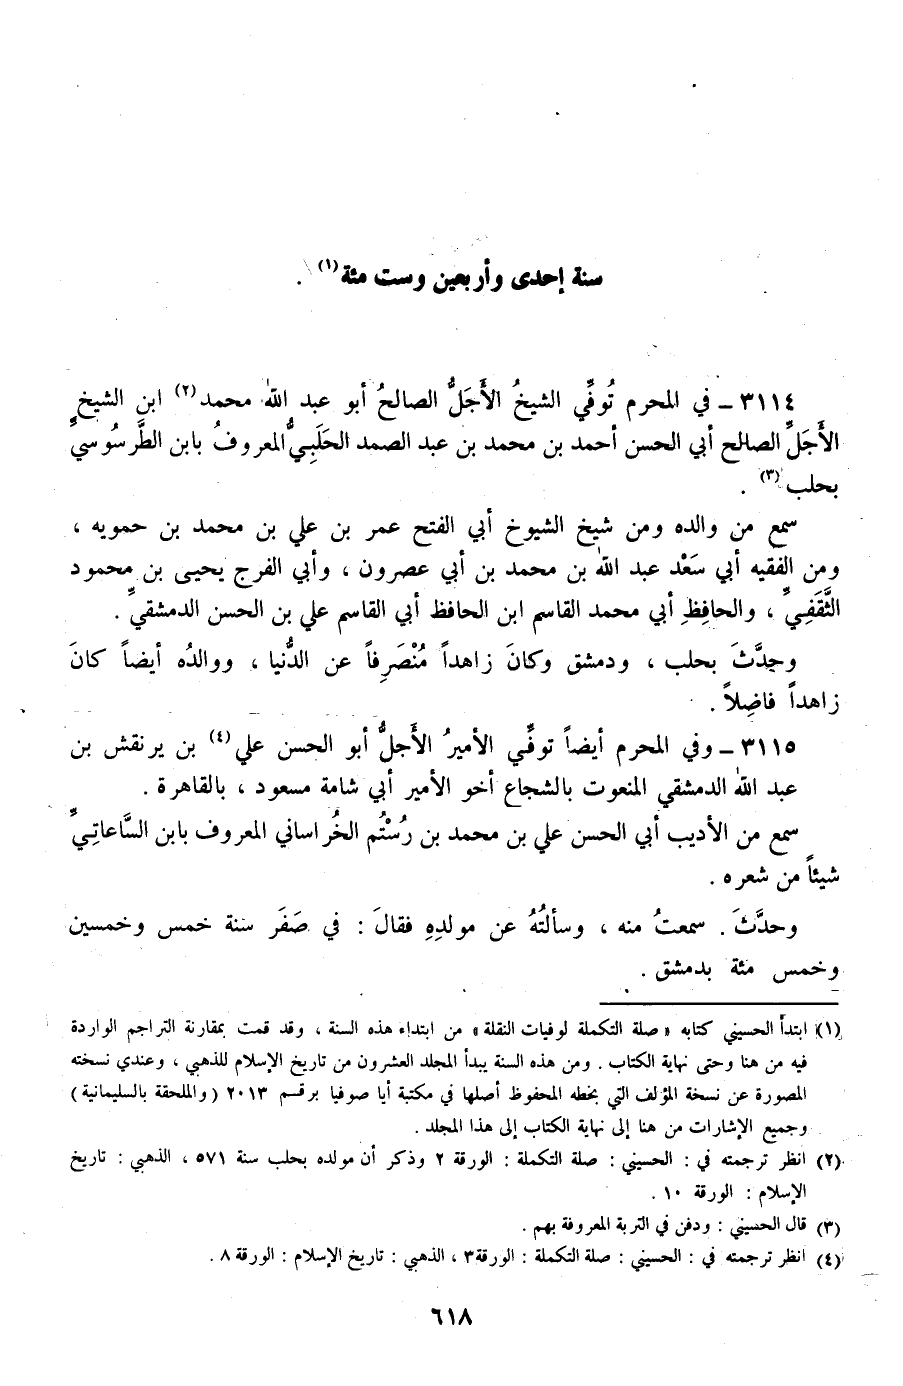 سنة إحدى وأربعين وست مئة(١) .
٣١١٤ ـ في المحرم تُوفِّي الشيخُ الأَجَلُّ الصالحُ أبو عبد الله محمد(٢) ابن الشيخ
الأَجَلِّ الصالح أبي الحسن أحمد بن محمد بن عبد الصمد الحَلَبِيُّ المعروفُ بابن الطَّرسُوسيِّ
بحلب(٣) .
سمع من والده ومن شيخ الشيوخ أبي الفتح عمر بن علي بن محمد بن حمويه ،
ومن الفقيه أبي سَعْد عبد الله بن محمد بن أبي عصرون ، وأبي الفرج يحيى بن محمود
الثَّقَفِيِّ ، والحافِظِ أبي محمد القاسم ابن الحافظ أبي القاسم علي بن الحسن الدمشقيِّ .
وحدَّثَ بحلب ، ودمشق وكانَ زاهداً مُنْصَرِفاً عن الدُّنيا ، ووالدُه أيضاً كانَ
زاهداً فاضِلاً .
٣١١٥ ـ وفي المحرم أيضاً توفِّي الأميرُ الأَجلُّ أبو الحسن علي(٤) بن يرنقش بن
عبد الله الدمشقي المنعوت بالشجاع أخو الأمير أبي شامة مسعود ، بالقاهرة .
سمع من الأديب أبي الحسن علي بن محمد بن رُسْتُم الخُراساني المعروف بابن السَّاعاتِيِّ
شيئاً من شعره .
وحدَّثَ . سمعتُ منه ، وسألتُهُ عن مولدِهِ فقالَ : في صَفَر سنة خمس وخمسين
وخمس مئة بدمشق .
(١) ابتدأ الحسيني كتابه « صلة التكملة لوفيات النقلة » من ابتداء هذه السنة ، وقد قمت بمقارنة التراجم الواردة
فيه من هنا وحتى نهاية الكتاب . ومن هذه السنة يبدأ المجلد العشرون من تاريخ الإسلام للذهبي ، وعندي نسخته
المصورة عن نسخة المؤلف التي بخطه المحفوظ أصلها في مكتبة أيا صوفيا برقم ٢٠١٣ ( والملحقة بالسليمانية )
وجميع الإشارات من هنا إلى نهاية الكتاب إلى هذا المجلد .
(٢) انظر ترجمته في : الحسيني : صلة التكملة : الورقة ٢ وذكر أن مولده بحلب سنة ٥٧١ ، الذهبي : تاريخ
الإسلام : الورقة ١٠ .
(٣) قال الحسيني : ودفن في التربة المعروفة بهم .
(٤) انظر ترجمته في : الحسيني : صلة التكملة : الورقة ٣ ، الذهبي : تاريخ الإسلام : الورقة ٨ .
٦١٨